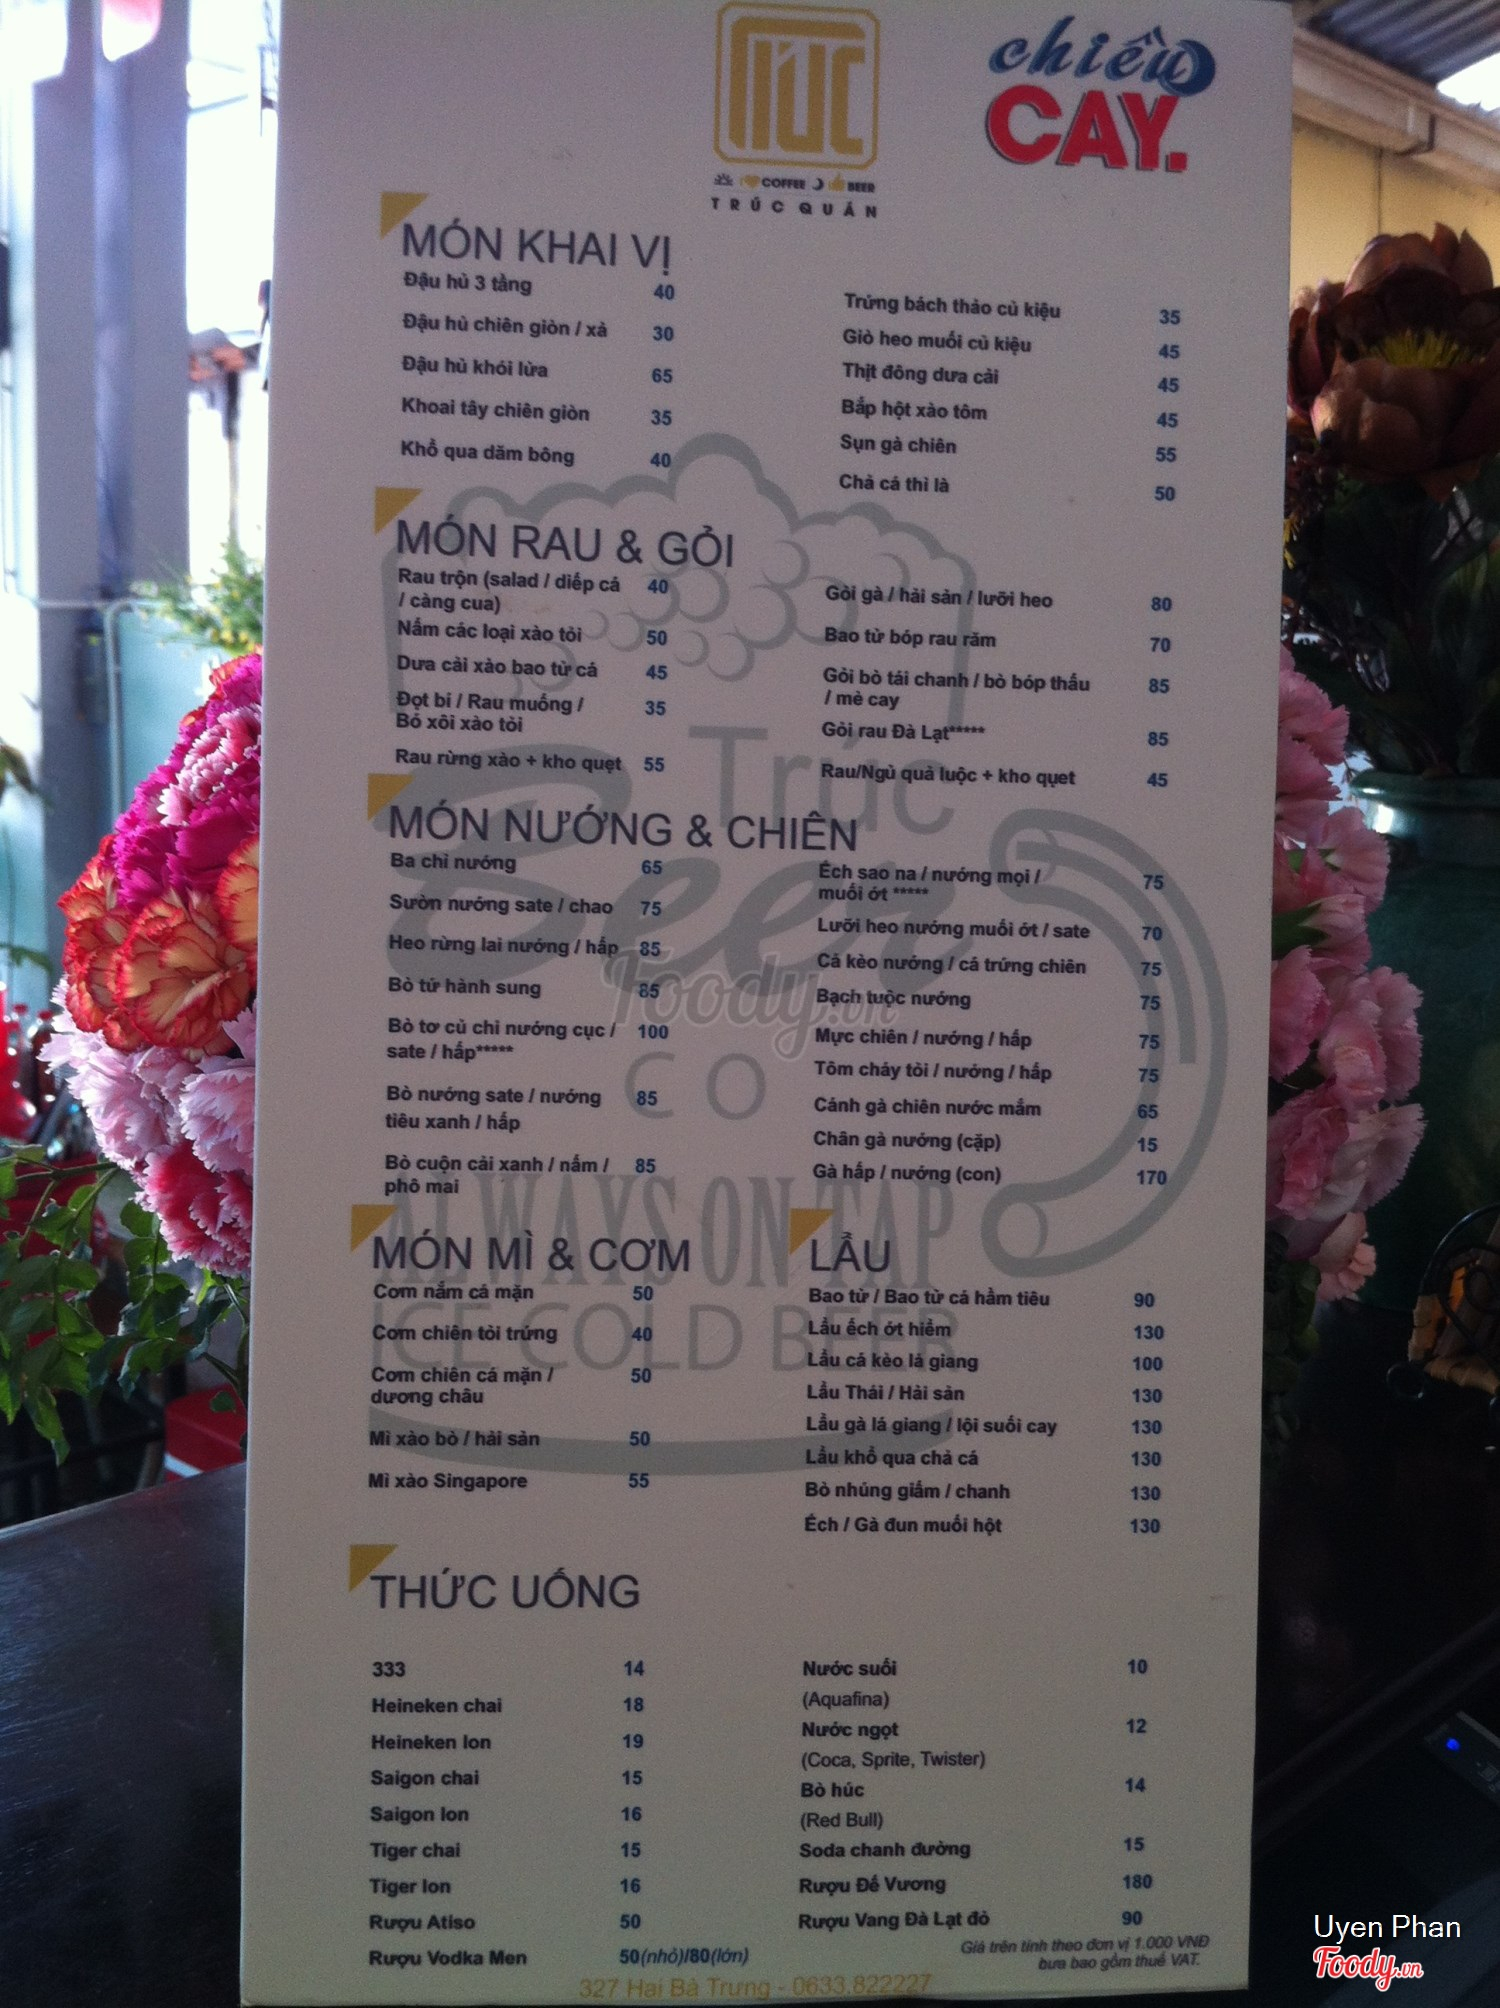 TRÚC
COFFEE BEER
TRÚC QUÁN
chiều
CAY.
MÓN KHAI VỊ
Đậu hủ 3 tầng 40
Đậu hủ chiên giòn / xả 30
Đậu hủ khói lửa 65
Khoai tây chiên giòn 35
Khổ qua dăm bông 40
Trứng bách thảo củ kiệu 35
Giò heo muối củ kiệu 45
Thịt đông dưa cải 45
Bắp hột xào tôm 45
Sụn gà chiên 55
Chả cá thì là 50
MÓN RAU & GỎI
Rau trộn (salad / diếp cá 40
/ càng cua)
Nấm các loại xào tỏi 50
Dưa cải xào bao tử cá 45
Đọt bí / Rau muống / 35
Bó xôi xào tỏi
Rau rừng xào + kho quẹt 55
Gỏi gà / hải sản / lưỡi heo 80
Bao tử bóp rau răm 70
Gỏi bò tái chanh / bò bóp thấu 85
/ mè cay
Gỏi rau Đà Lạt***** 85
Rau/Ngũ quả luộc + kho quẹt 45
MÓN NƯỚNG & CHIÊN
Ba chỉ nướng 65
Sườn nướng sate / chao 75
Heo rừng lai nướng / hấp 85
Bò tứ hành sung 85
Bò tơ củ chi nướng cục / 100
sate / hấp*****
Bò nướng sate / nướng 85
tiêu xanh / hấp
Bò cuộn cải xanh / nấm / 85
phô mai
Ếch sao na / nướng mọi / 75
muối ớt *****
Lưỡi heo nướng muối ớt / sate 70
Cá kèo nướng / cá trứng chiên 75
Bạch tuộc nướng 75
Mực chiên / nướng / hấp 75
Tôm cháy tỏi / nướng / hấp 75
Cánh gà chiên nước mắm 65
Chân gà nướng (cặp) 15
Gà hấp / nướng (con) 170
Trúc
Beer
CO
ALWAYS ON TAP
ICE COLD BEER
Foody.vn
MÓN MÌ & CƠM
Cơm nắm cá mặn 50
Cơm chiên tỏi trứng 40
Cơm chiên cá mặn / 50
dương châu
Mì xào bò / hải sản 50
Mì xào Singapore 55
LẨU
Bao tử / Bao tử cá hầm tiêu 90
Lẩu ếch ớt hiểm 130
Lẩu cá kèo lá giang 100
Lẩu Thái / Hải sản 130
Lẩu gà lá giang / lội suối cay 130
Lẩu khổ qua chả cá 130
Bò nhúng giấm / chanh 130
Ếch / Gà đun muối hột 130
THỨC UỐNG
333 14
Heineken chai 18
Heineken lon 19
Saigon chai 15
Saigon lon 16
Tiger chai 15
Tiger lon 16
Rượu Atiso 50
Rượu Vodka Men 50(nhỏ)/80(lớn)
Nước suối 10
(Aquafina)
Nước ngọt 12
(Coca, Sprite, Twister)
Bò húc 14
(Red Bull)
Soda chanh đường 15
Rượu Đế Vương 180
Rượu Vang Đà Lạt đỏ 90
Giá trên tính theo đơn vị 1.000 VNĐ
bưa bao gồm thuế VAT.
327 Hai Bà Trưng - 0633.822227
Uyen Phan
Foody.vn